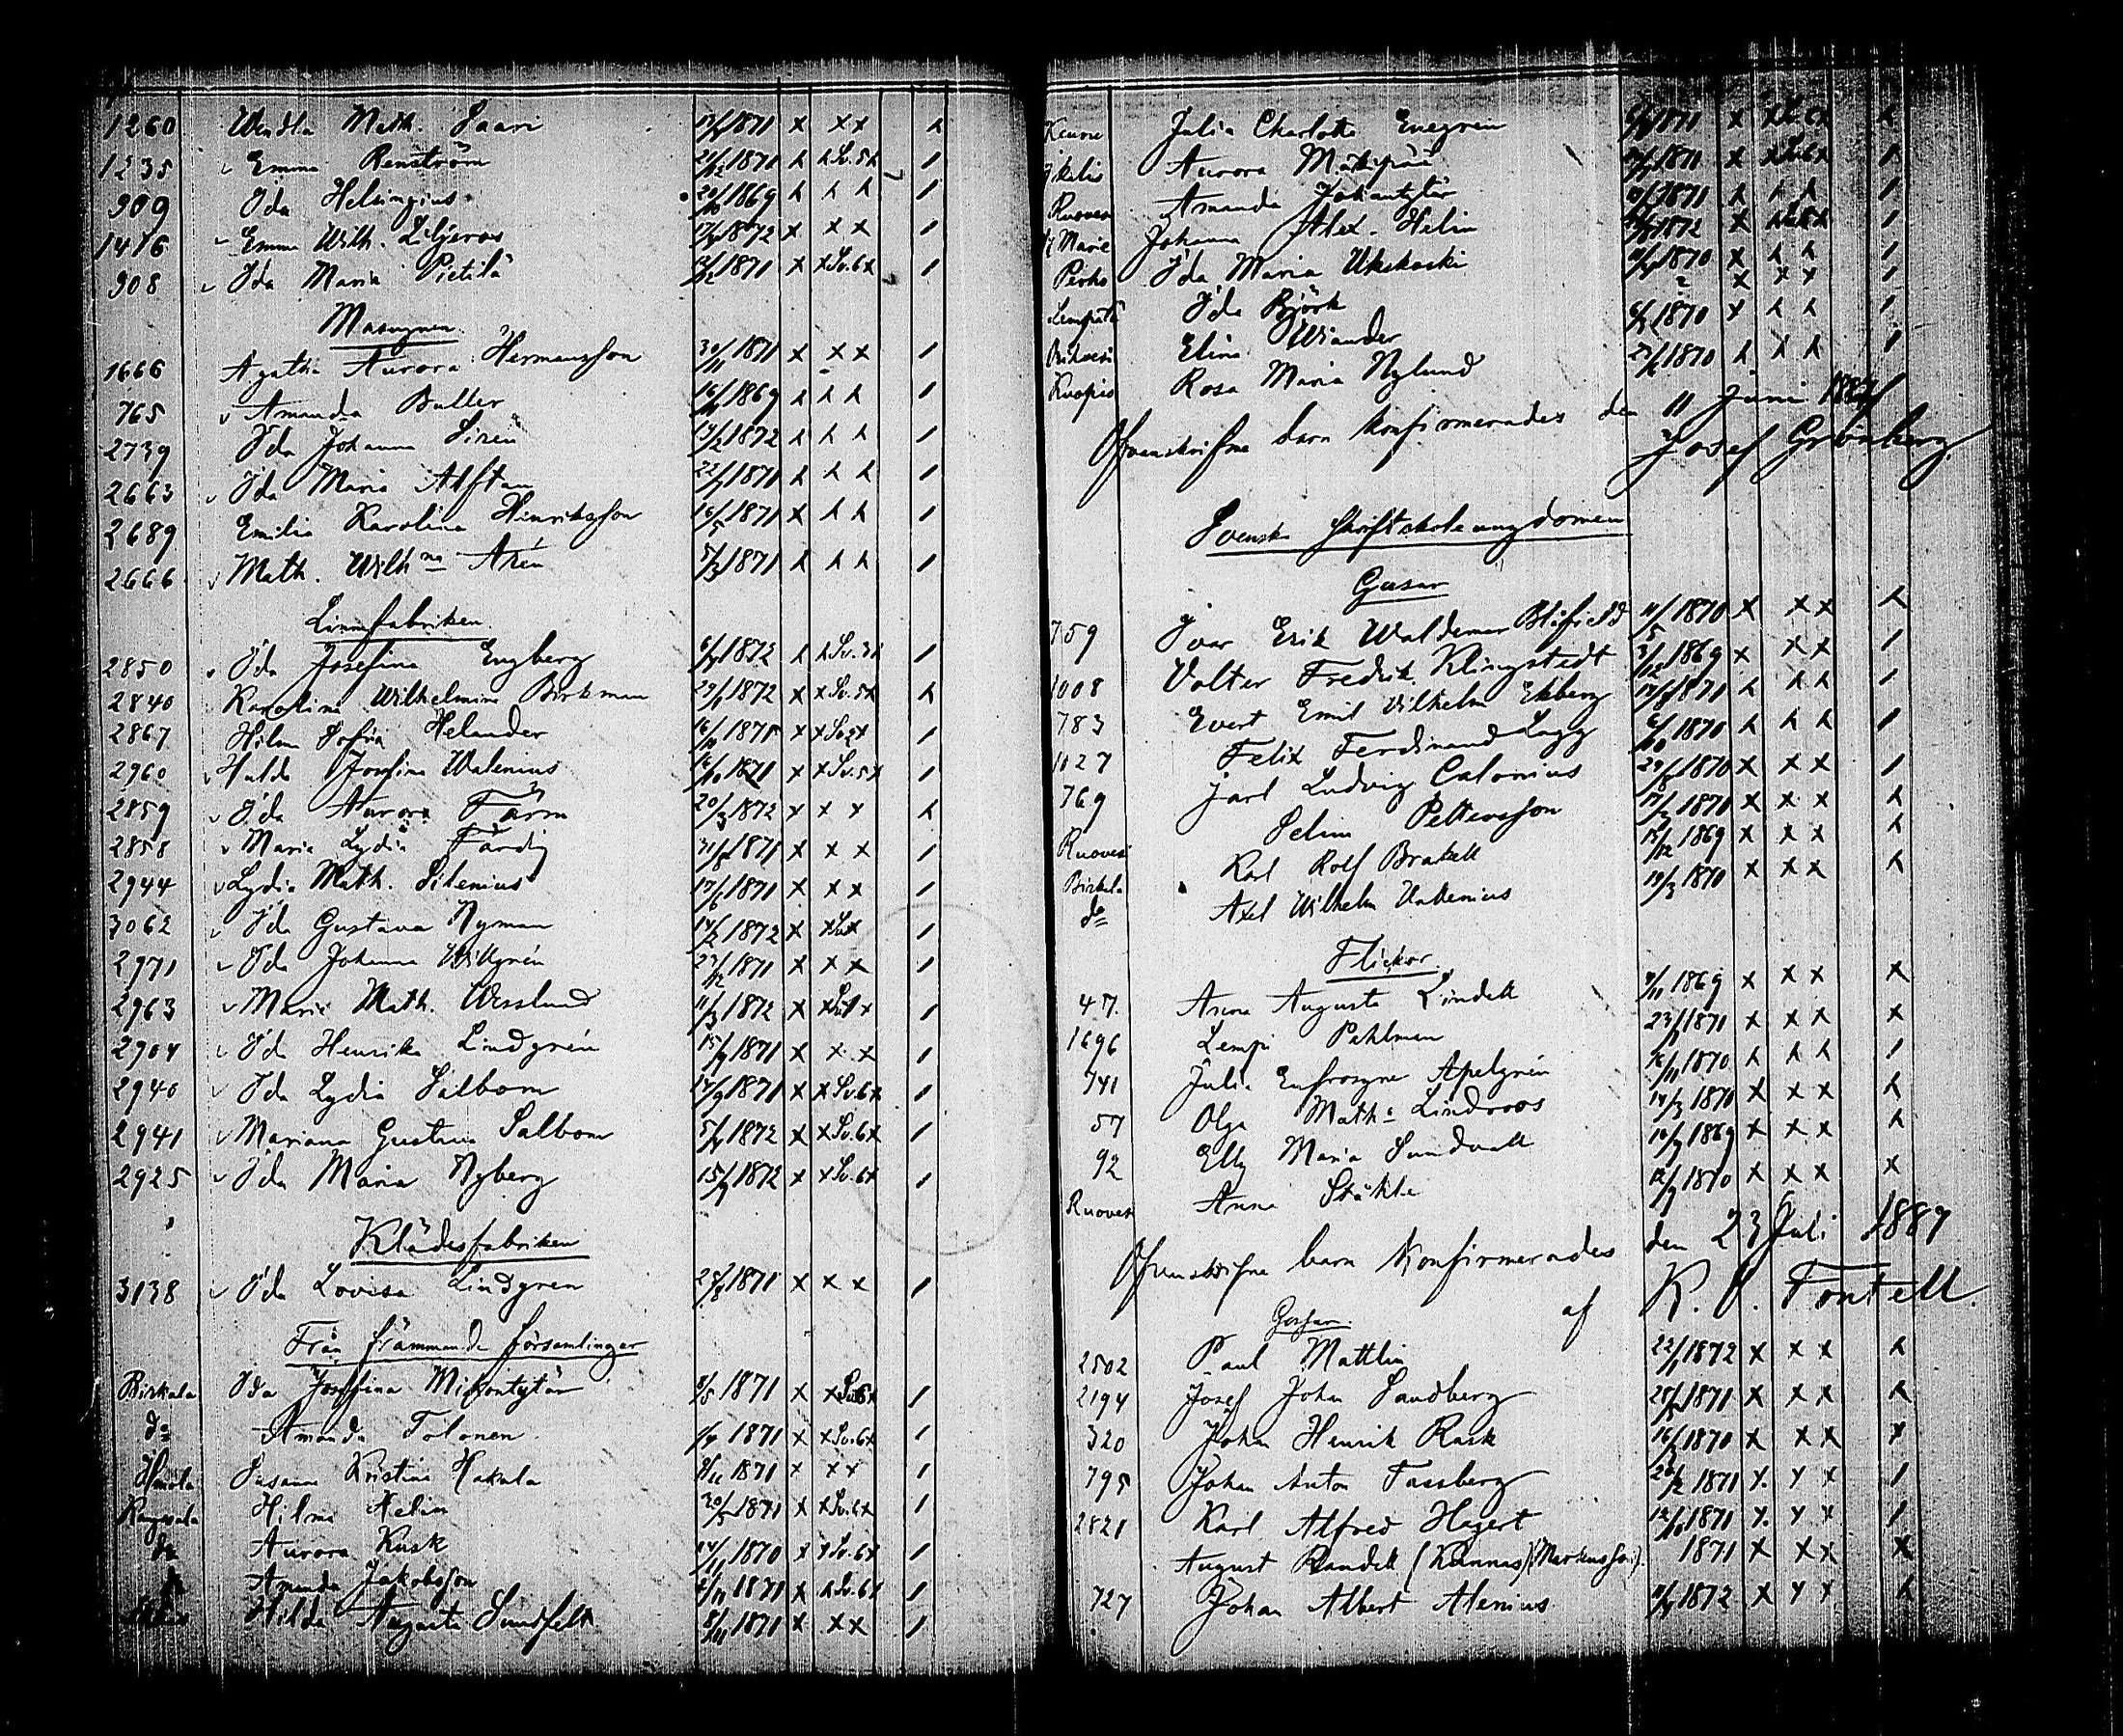 1260 Wendla Math. Saari 1871 x x x
1235 Emma Renström 21/12 1871 Sv. 5
909 Ida Helsingius 20/10 1869
1416 Emma Wilh. Liljeroos 1872 x x x
908 Ida Maria Pietilä 1871 x x Sv. 6 x
Masugnen
1666 Agatha Aurora Hermansson 30/11 1871 x x x
765 Amanda Buller 1869
2739 Ida Johanna Sirén 19/2 1872
2663 Ida Maria Alftan 1871
2689 Emilia Karolina Hinriksson 16/5 1871 x
2666 Math. Wilhna Arén 5/3 1871
Linnefabriken
2850 Ida Josefina Engberg 1872 Sv.
2840 Karolina Wilhelmina Birkman 29/1 1872 x x Sv. 5 x
2867 Hilma Sofia Helander 16/10 1871 x x Sv. x
2960 Hulda Josefina Walenius 16/10 1871 x x Sv. 5 x
2859 Ida Aurora Färm 20/3 1872 x x x
2858 Maria Lydia Färdig 31/8 1871 x x x
2944 Lydia Math. Silenius 17/6 1871 x x x
3062 Ida Gustava Nyman 14/2 1872 x x Sv. x
2971 Ida Johanna Willgrén 27/12 1871 x x x
2963 Maria Math. Wesslund 11/3 1872 x x x
2904 Ida Henrika Lindgrén 15/9 1871 x x x
2940 Ida Lydia Salbom 14/9 1871 x x Sv. 6 x
2941 Mariana Gustava Salbom 5/4 1872 x x Sv. 6 x
2925 Ida Maria Nyberg 15/9 1872 x x Sv. 6 x
Klädesfabriken
3138 Ida Lovisa Lindgren 25/8 1871 x x x
Från främmande församlingar
Birkala Ida Josefina Mikontytär 8/5 1871 x x
do Amanda Tolonen 1871 x x Sv. 6 x
Susanna Kristina Hakala 9/11 1871 x x x
Kangasala Hilma Helin 30/5 1871 x x Sv. 6 x
do Aurora Kusk 14/11 1870 x x Sv. 6 x
Amanda Jakobsson 1871 x Sv. 6 x
Hilda Augusta Sundfelt 8/11 1871 x x x
Keuru Julia Charlotta Enegren 1871 x
Aurora Mäkipää 1871 x
Ruovesi Amanda Johantytär 1871
St Marie Johanna Alex. Helin 1872 x
Perho Ida Maria Ukskoski 1870 x
Lempäälä Ida Björk ? x x x
Orihvesi Elina Wiander 1870 x
Kuopio Rosa Maria Nylund 1870
Ofvanskrifne barn konfirmerades den 11 Juni
Josef Grönberg
Svenska skriftskoleungdomen
Gossar
759 Ivar Erik Waldemar Blåfield 11/5 1870 x x x
1008 Volter Fredrik Klingstedt 3/12 1869 x x x
783 Evert Emil Vilhelm Ekberg 1871
1027 Felix Ferdinand Lagg 6/10 1870
769 Jarl Ludvig Calonius 29/8 1870 x x x
Selim Pettersson 17/3 1871 x x x
Ruovesi Karl Rolf Brakell 15/12 1869 x x x
Birkala
do Axel Wilhelm Vallenius 19/3 1870 x x x
Flickor
47. Anna Augusta Lindell 9/11 1869 x x x x
1696 Lempi Pahlman 23/8 1871 x x x x
741 Julia Eufrosyne Apelgrén 16/11 1870
57 Olga Matha Lindroos 14/3 1870 x x x
92 Elly Maria Sundvall 10/9 1869 x x x
Ruovesi Anna Ståhle 12/9 1870 x x x x
Ofvanskrifne barn konfirmerades den 23 Juli 1887
af K. J. Fontell.
Gossar.
2502 Paul Mattlin 22/1 1872 x x x
2194 Josef Johan Sandberg 1871 x x x
320 Johan Henrik Rask 16/3 1870 x x x x
795 Johan Anton Fassberg 20/2 1871 x x x
2821 Karl Alfred Hagert 12/10 1871 x x x
August Randell (Kannas) (Markusson). 1871 x x x x
727 Johan Albert Alenius 1872 x x x